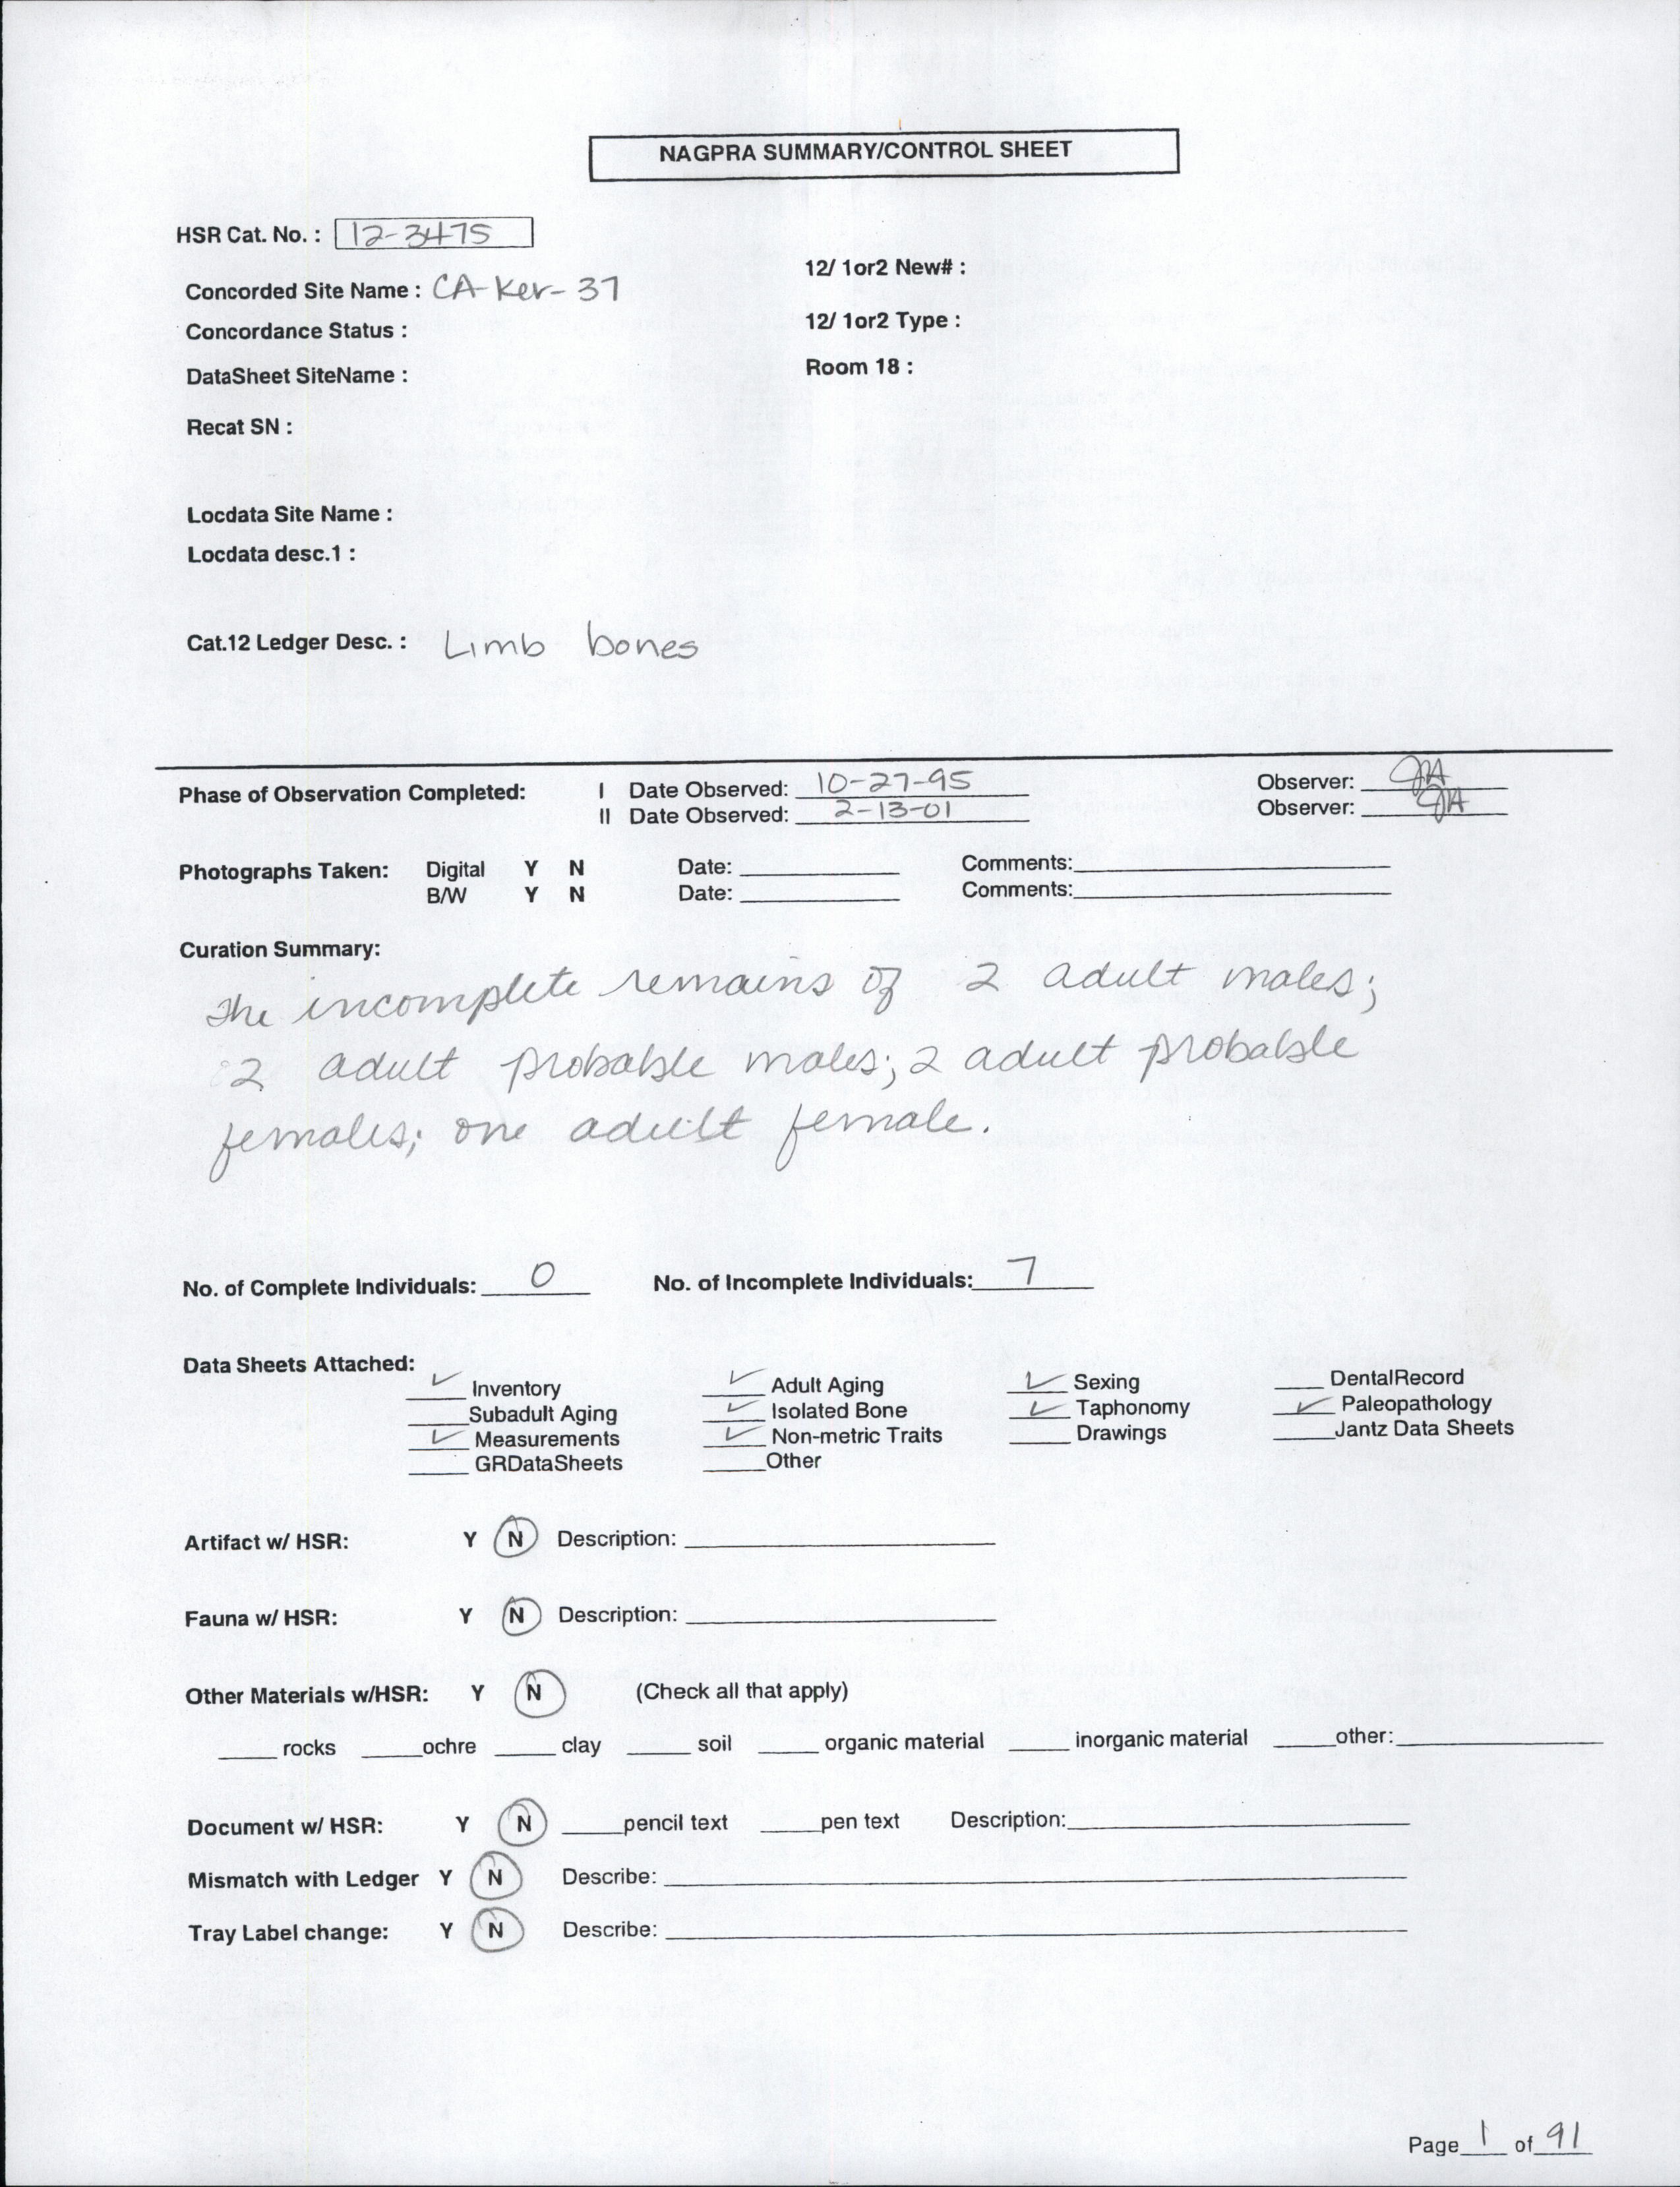 NAGPRA SUMMARY/CONTROL SHEET
HSR Cat. No. : 12-3475
12/ 1or2 New# :
Concorded Site Name : CA-Ker-37
Concordance Status :
12/ 1or2 Type :
DataSheet SiteName :
Room 18 :
Recat SN :
Locdata Site Name :
Locdata desc.1 :
Cat.12 Ledger Desc. : Limb bones
Phase of Observation Completed: I Date Observed: 10-27-95 Observer: JA
II Date Observed: 2-13-01 Observer: JA
Photographs Taken: Digital Y N Date: Comments:
B/W Y N Date: Comments:
Curation Summary:
The incomplete remains of 2 adult males;
2 adult probable males; 2 adult probable
females; one adult female.
No. of Complete Individuals: 0 No. of Incomplete Individuals: 7
Data Sheets Attached:
✓ Inventory ✓ Adult Aging ✓ Sexing DentalRecord
Subadult Aging ✓ Isolated Bone ✓ Taphonomy ✓ Paleopathology
✓ Measurements ✓ Non-metric Traits Drawings Jantz Data Sheets
GRDataSheets Other
Artifact w/ HSR: Y N Description:
Fauna w/ HSR: Y N Description:
Other Materials w/HSR: Y N (Check all that apply)
rocks ochre clay soil organic material inorganic material other:
Document w/ HSR: Y N pencil text pen text Description:
Mismatch with Ledger Y N Describe:
Tray Label change: Y N Describe:
Page 1 of 91